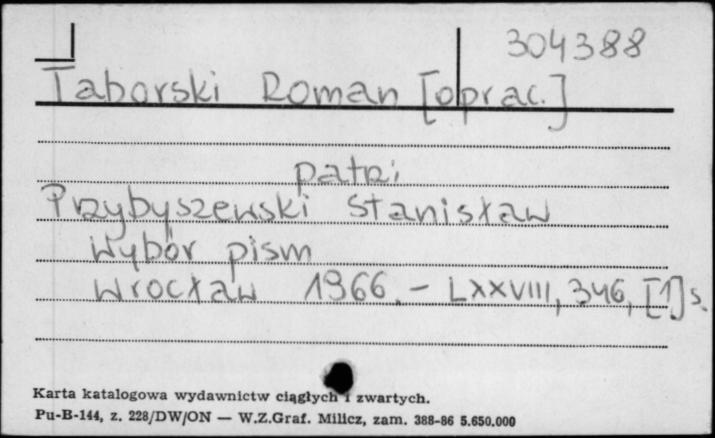 304388
Taborski Roman [oprac.]
patrz
Przybyszewski Stanisław
Wybór pism
Wrocław 1966. – LXXVIII, 346, [1] s.
Karta katalogowa wydawnictw ciągłych i zwartych.
Pu-B-144, z. 228/DW/ON — W.Z.Graf. Milicz, zam. 388-86 5.650.000